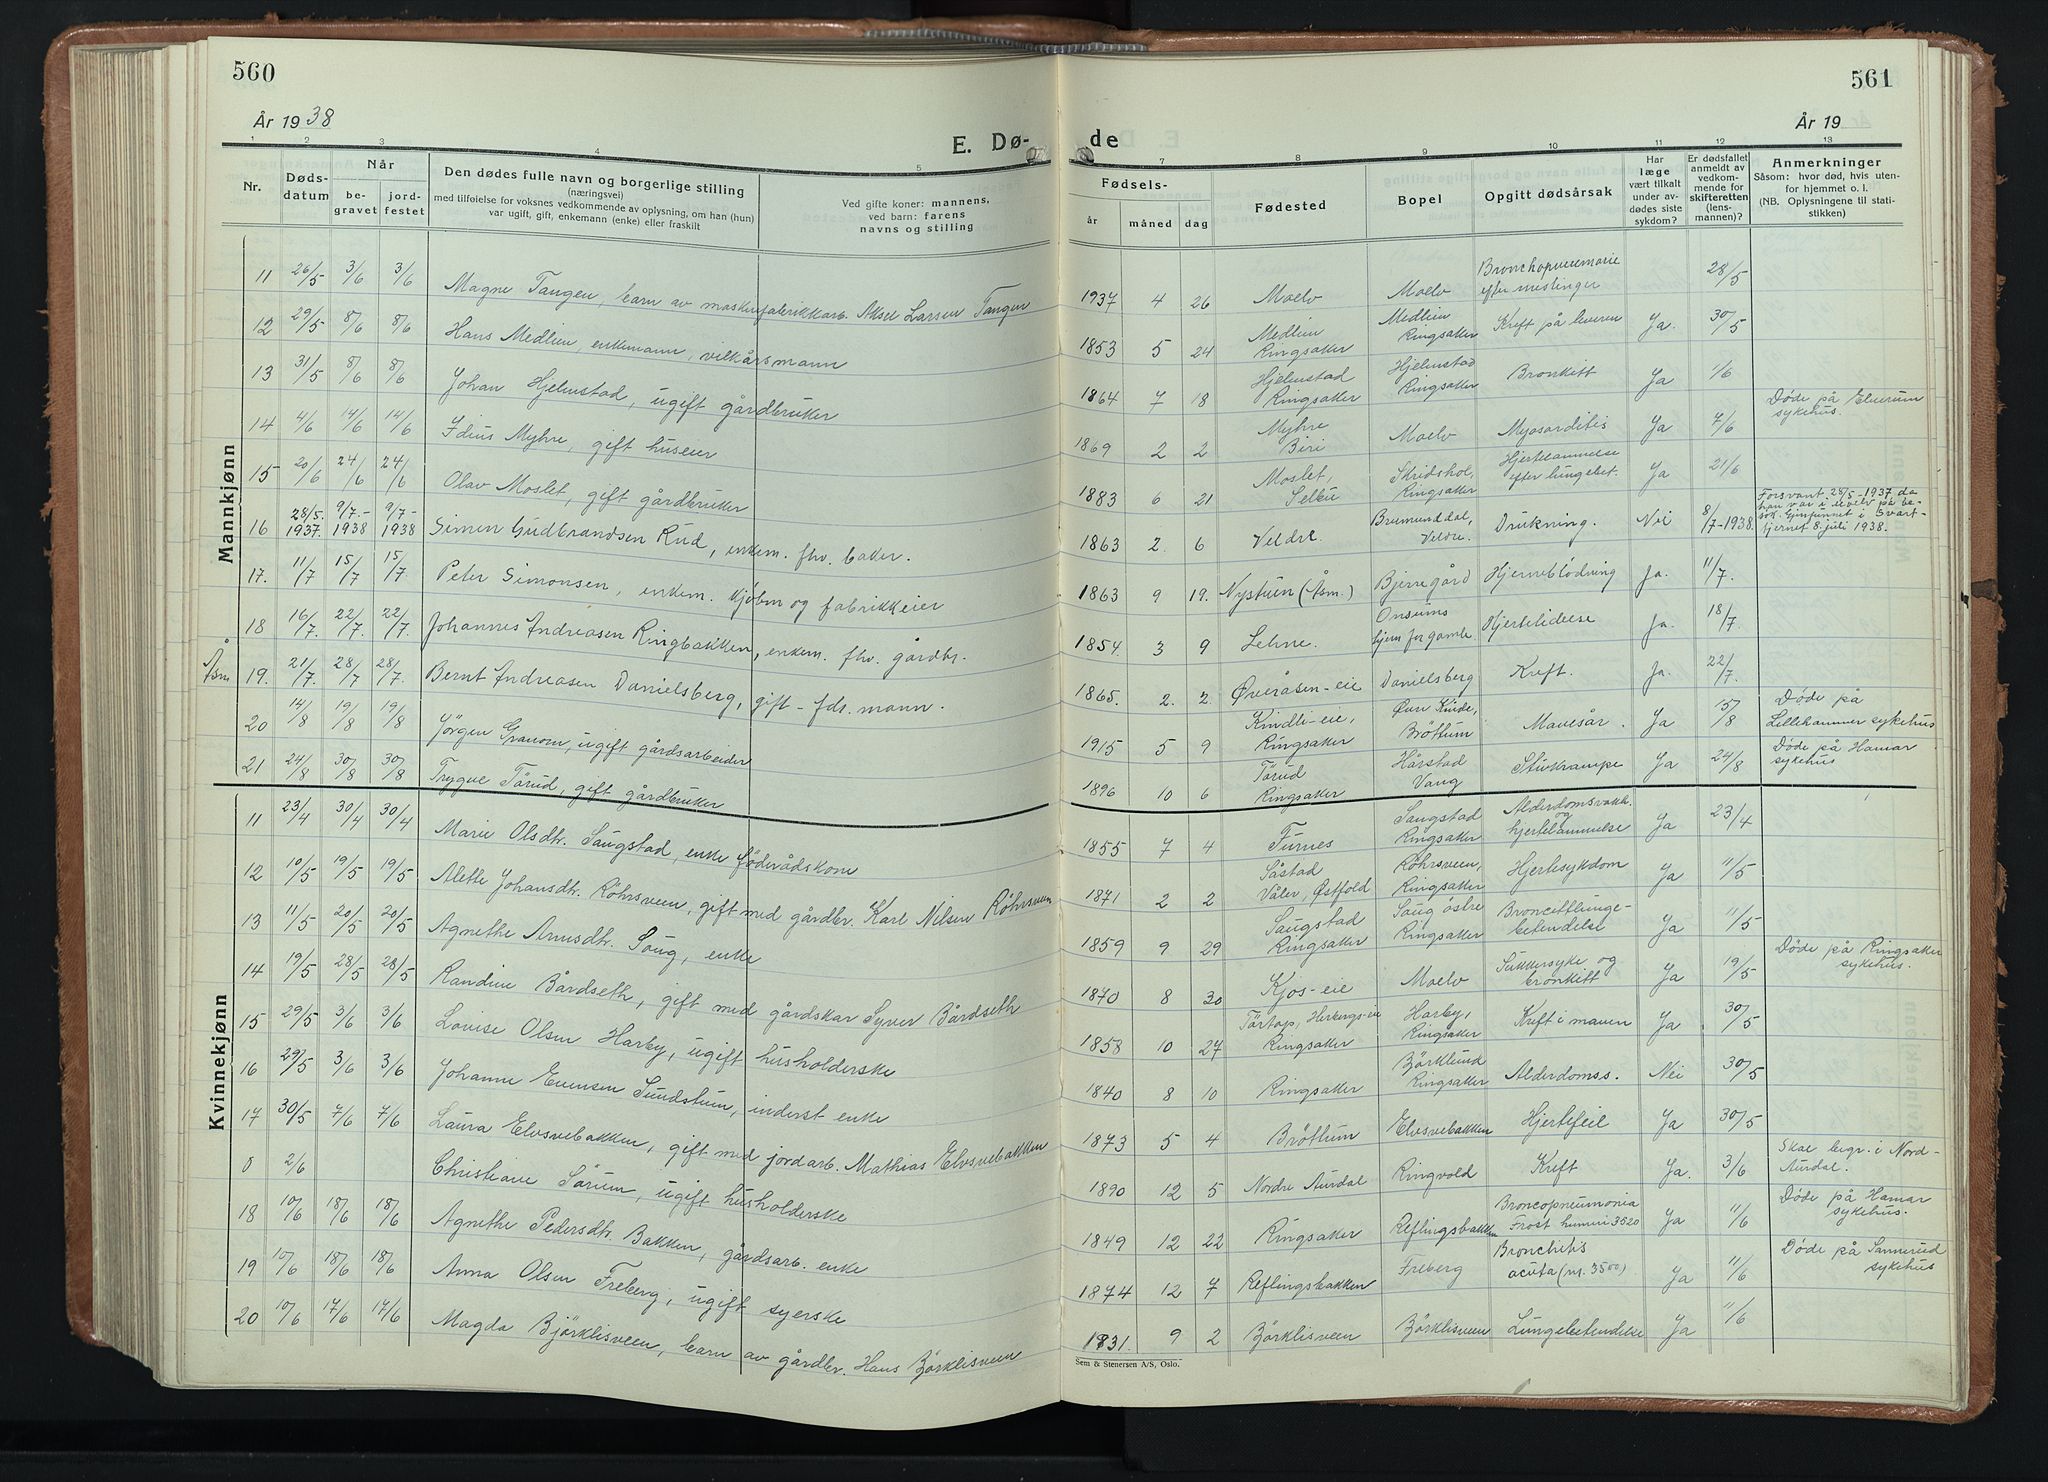 560
År 1938
E. Dø-
1 2 3 4 5
Nr.
Døds-
datum
Når
be-
gravet
jord-
festet
Den dødes fulle navn og borgerlige stilling
(næringsvei)
med tilføielse for voksnes vedkommende av oplysning, om han (hun)
var ugift, gift, enkemann (enke) eller fraskilt
Ved gifte koner: mannens,
ved barn: farens
navns og stilling
Mannkjønn
11 26/5 3/6 3/6 Magne Tangen, barn av maskinfabrikkarb. Aksel Larsen Tangen
12 29/5 8/6 8/6 Hans Medlien, enkemann, vilkårsmann
13 31/5 8/6 8/6 Johan Hjelmstad, ugift gårdbruker
14 4/6 14/6 14/6 Idius Myhre, gift huseier
15 20/6 24/6 24/6 Olav Moslet, gift gårdbruker
16 28/5. 1937. 9/7.- 1938 9/7- 1938 Simen Gudbrandsen Rud, enkem. fhv. baker.
17. 11/7 15/7 15/7 Peter Simonsen, enkem. kjøbm og fabrikkeier
18 16/7. 22/7. 22/7. Johannes Andreasen Ringbakken, enkem. fhv. gårdbr.
Åsm 19. 21/7. 28/7 28/7. Bernt Andreasen Danielsberg, gift - fds. mann.
20 14/8 19/8 19/8 Jörgen Granom, ugift gårdsarbeider
21 24/8 30/8 30/8 Trygve Törud, gift gårdbruker
Kvinnekjønn
11 23/4 30/4 30/4 Marie Olsdtr. Saugstad, enke föderådskone
12 10/5 19/5 19/5 Alette Johansdtr. Röhrsveen, gift med gårdbr. Karl Nilsen Röhrsveen
13 11/5 20/5 20/5 Agnethe Arnesdtr. Saug, enke
14 19/5 28/5 28/5 Randine Bårdseth, gift med gårdskar Syver Bårdseth
15 29/5 3/6 3/6 Lovise Olsen Harby, ugift husholderske
16 29/5 3/6 3/6 Johanne Evensen Sundstuen, inderst enke
17 30/5 7/6 7/6 Laura Elvsvebakken, gift med jordarb. Mathias Elvsvebakken
0 2/6 Christiane Sörum, ugift husholderske
18 10/6 18/6 18/6 Agnethe Pedersdtr. Bakken, gårdsarb. enke
19 10/6 18/6 18/6 Anna Olsen Freberg, ugift syerske
20 10/6 17/6 17/6 Magda Björklisveen, barn av gårdbr. Hans Björklisveen
561
År 19
de
7 8 9 10 11 12 13
Fødsels-
år måned dag
Fødested
Bopel
Opgitt dødsårsak
Har
læge
vært tilkalt
under av-
dødes siste
sykdom?
Er dødsfallet
anmeldt av
vedkom-
mende for
skifteretten
(lens-
mannen)?
Anmerkninger
Såsom: hvor død, hvis uten-
for hjemmet o. l.
(NB. Oplysningene til stati-
stikken)
1937 4 26 Moelv Moelv Bronchopneumonie efter meslinger 28/5
1853 5 24 Medlien Ringsaker Medlien Ringsaker Kreft på leveren Ja. 30/5
1864 7 18 Hjelmstad Ringsaker Hjelmstad Ringsaker Bronkitt Ja 1/6
1869 2 2 Myhre Biri Moelv Myocarditis Ja 7/6 Döde på Elverum sykehus.
1883 6 21 Moslet, Selbu Skridshol, Ringsaker Hjertelammelse efter lungebet. Ja 21/6
1863 2. 6 Veldre. Brumunddal, Veldre. Drukning. Nei 8/7-1938. Forsvant 28/5-1937 da han var i Moelv på besök. Gjenfunnet i Svart-tjernet 8. juli 1938.
1863 9 19. Nystuen (Åsm.) Bjerregård Hjerneblödning Ja. 11/7.
1854. 3 9 Lehne. Onsums hjem for gamle Hjertelidelse Ja. 18/7.
1865. 2. 2. Øveråsen-eie Danielsberg Kreft. Ja. 22/7.
1915 5 9 Kindli-eie, Ringsaker Øvre Kinde, Bröttum Mavesår. Ja 15/8 Döde på Lillehammer sykehus
1896 10 6 Törud Ringsaker Hårstad Vang Stivkrampe Ja 24/8 Döde på Hamar sykehus
1855 7 4 Furnes Saugstad Ringsaker Alderdomsvakh. og hjertelammelse Ja 23/4
1871 2 2 Såstad Våler, Østfold Röhrsveen, Ringsaker Hjertesykdom Ja 11/5
1859 9 29 Saugstad Ringsaker Saug östre Ringsaker Broncittlunge-betendelse Ja 11/5
1870 8 30 Kjos-eie Moelv Sukkersyke og bronkitt Ja 19/5 Döde på Ringsaker sykehus.
1858 10 27 Törtop, Herbergs-eie Ringsaker Harby, Ringsaker Kreft i maven Ja 30/5
1840 8 10 Ringsaker Björklund Ringsaker Alderdomss. Nei 30/5
1873 5 4 Bröttum Elvsvebakken Hjertefeil Ja 30/5
1890 12 5 Nordre Aurdal Ringvold Kreft Ja. 3/6 Skal begr. i Nord-Aurdal.
1849 12 22 Ringsaker Reflingsbakken Broncopneumonia Frost humeri 3520 Ja 11/6 Döde på Hamar sykehus.
1874 12 7 Reflingsbakken Freberg Bronchitis acuta (nr. 3500) Ja 11/6 Döde på Sannerud sykehus
1931. 9 2 Björklisveen Björklisveen Lungebetendelse Ja 11/6
Sem & Stenersen A/S, Oslo.